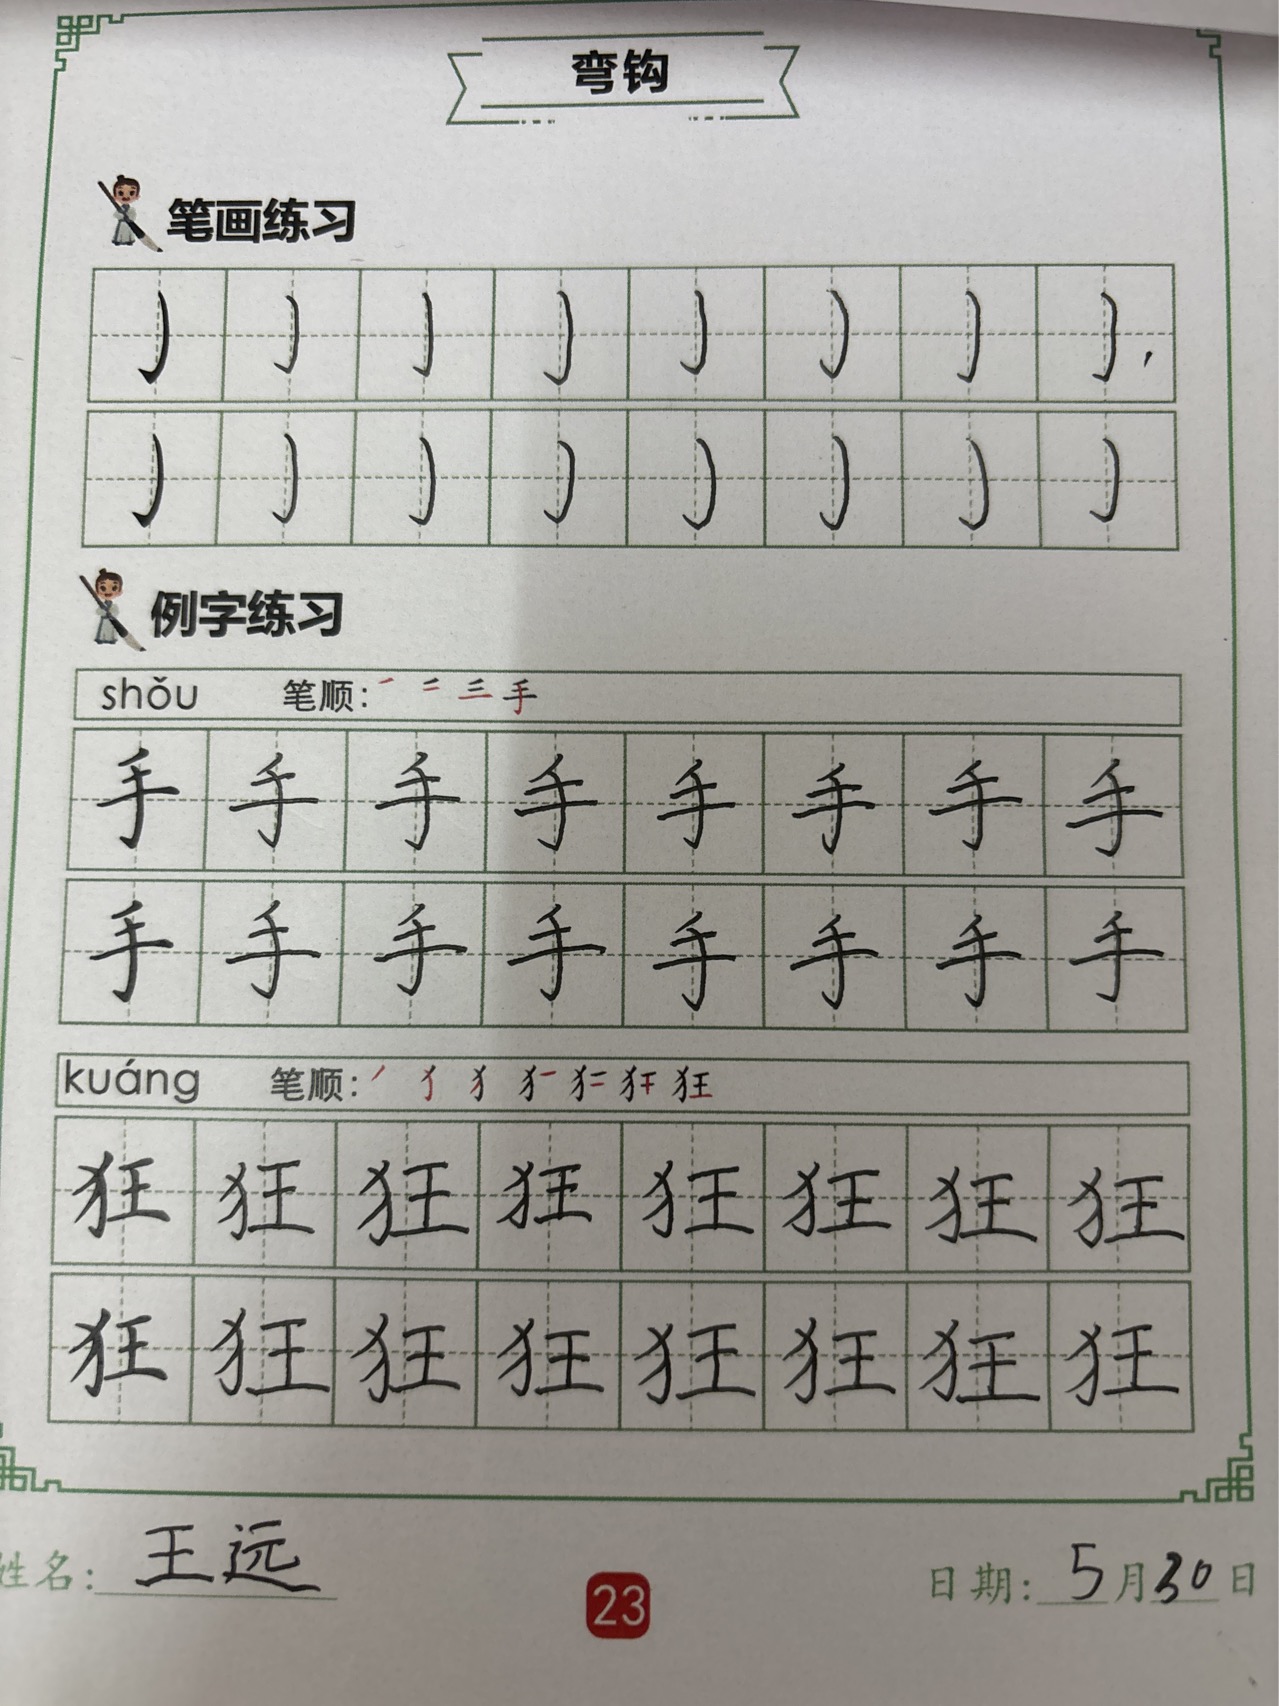 弯钩
笔画练习
㇁ ㇁ ㇁ ㇁ ㇁ ㇁ ㇁ ㇁
㇁ ㇁ ㇁ ㇁ ㇁ ㇁ ㇁ ㇁
例字练习
shǒu 笔顺: 一 二 三 手
手 手 手 手 手 手 手 手
手 手 手 手 手 手 手 手
kuáng 笔顺: ㇒ 犭 狂
狂 狂 狂 狂 狂 狂 狂 狂
狂 狂 狂 狂 狂 狂 狂 狂
姓名: 王远 23 日期: 5月30日